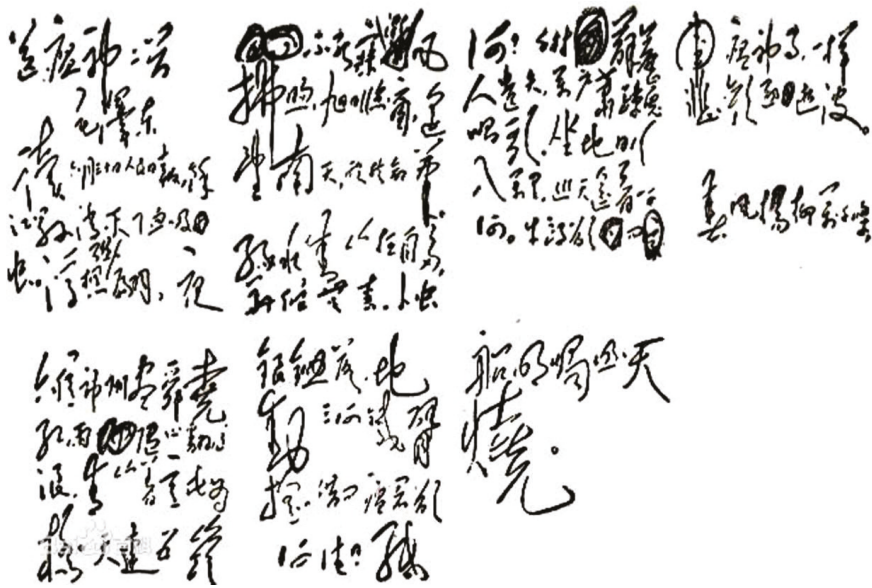 送瘟神二首
毛泽东
读六月三十日人民日报,余
江县消灭了血吸
虫。浮想联翩,夜
不能寐。微风
拂煦,旭日临窗,遥
望南天,欣然命笔。
绿水青山枉自多,
华佗无奈小虫
何!千村薜荔
人遗矢,万户萧疏鬼
唱歌。坐地日行
八万里,巡天遥看一千
河。牛郎欲问
瘟神事,一样
悲欢逐逝波。
春风杨柳万千条
六亿神州尽舜尧
红雨随心翻作
浪,青山着意化为
桥。天连五岭
银锄落,地
动三河铁臂
摇。借问瘟君欲
何往?纸
船明烛照天
烧。